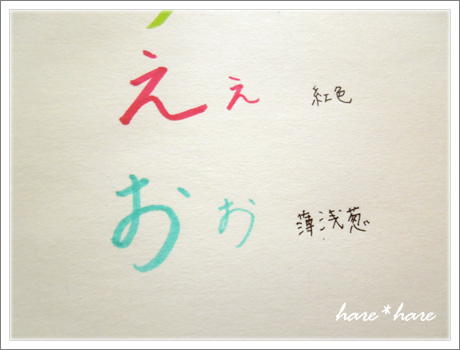 え え 紅色
お お 薄浅葱
hare*hare